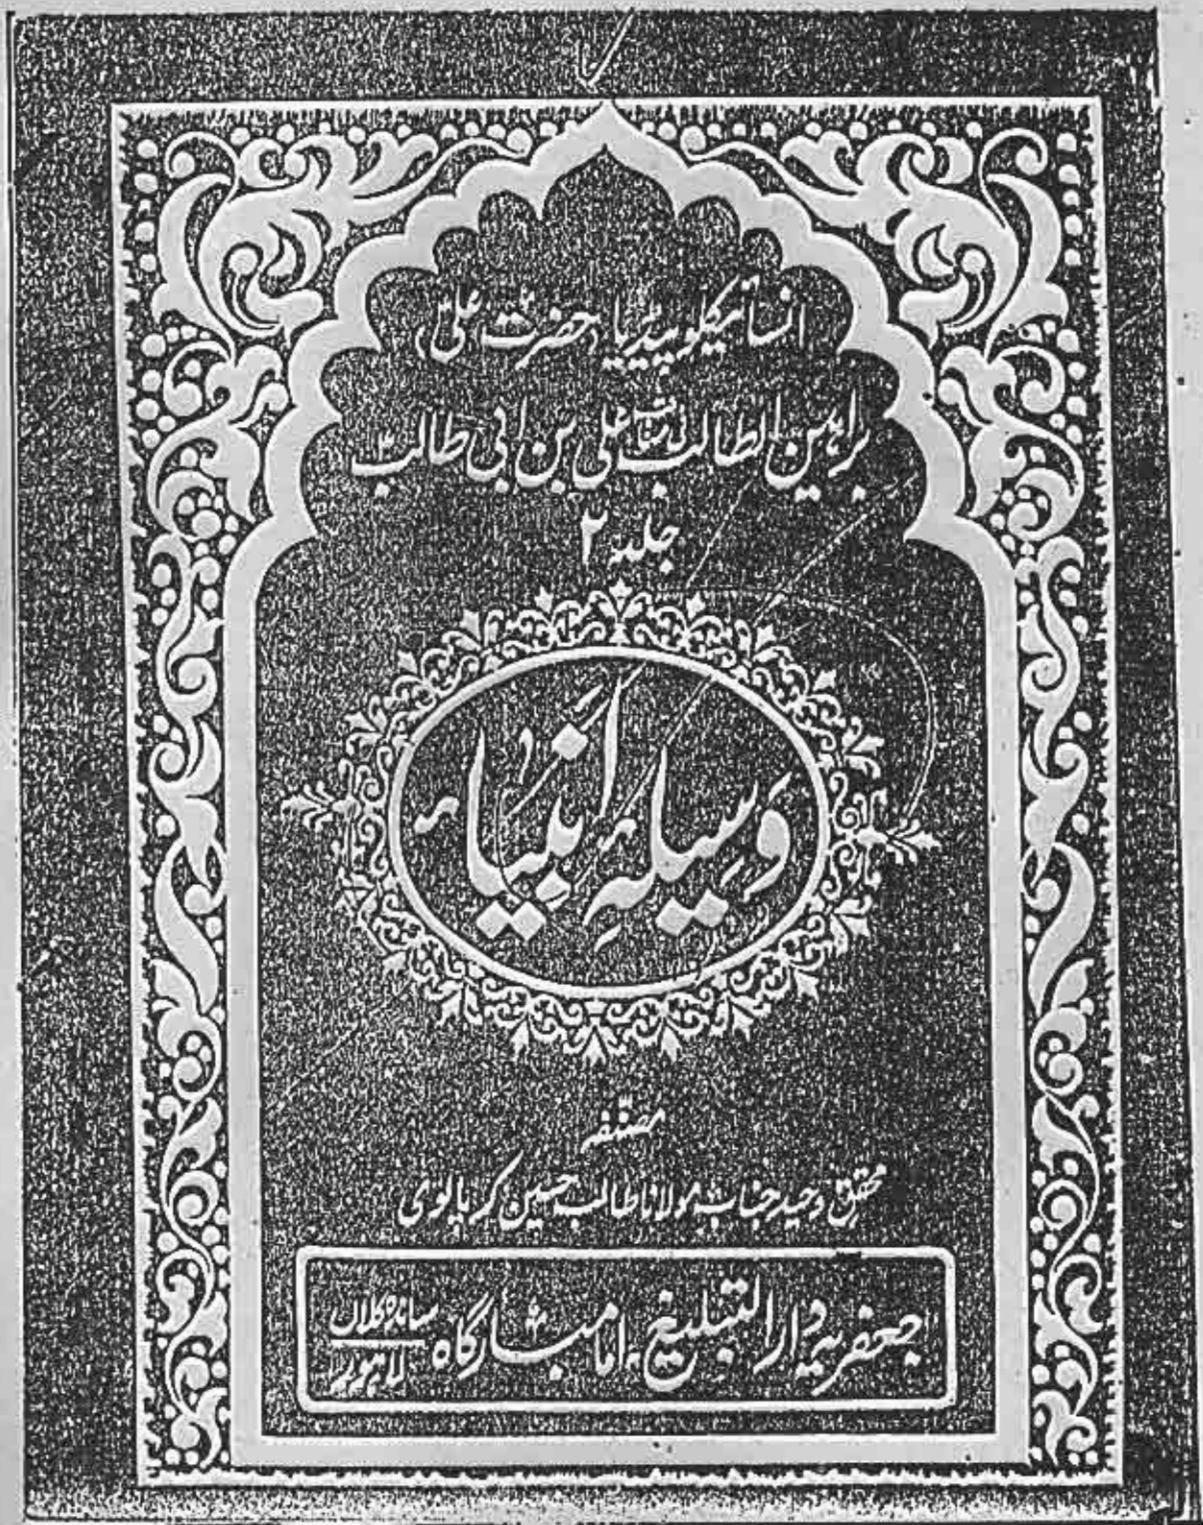 انسائیکلوپیڈیا حضرت علیؑ
براہین المطالب علی بن ابی طالبؑ
جلد ۲
وَسِیلہٴ اَنبیَاء
مصنفہ
محقق وحید جناب مولانا طالب حسین کرپالوی
جعفریہ دار التبلیغ امامبارگاہ سانده کلاں
لاہور